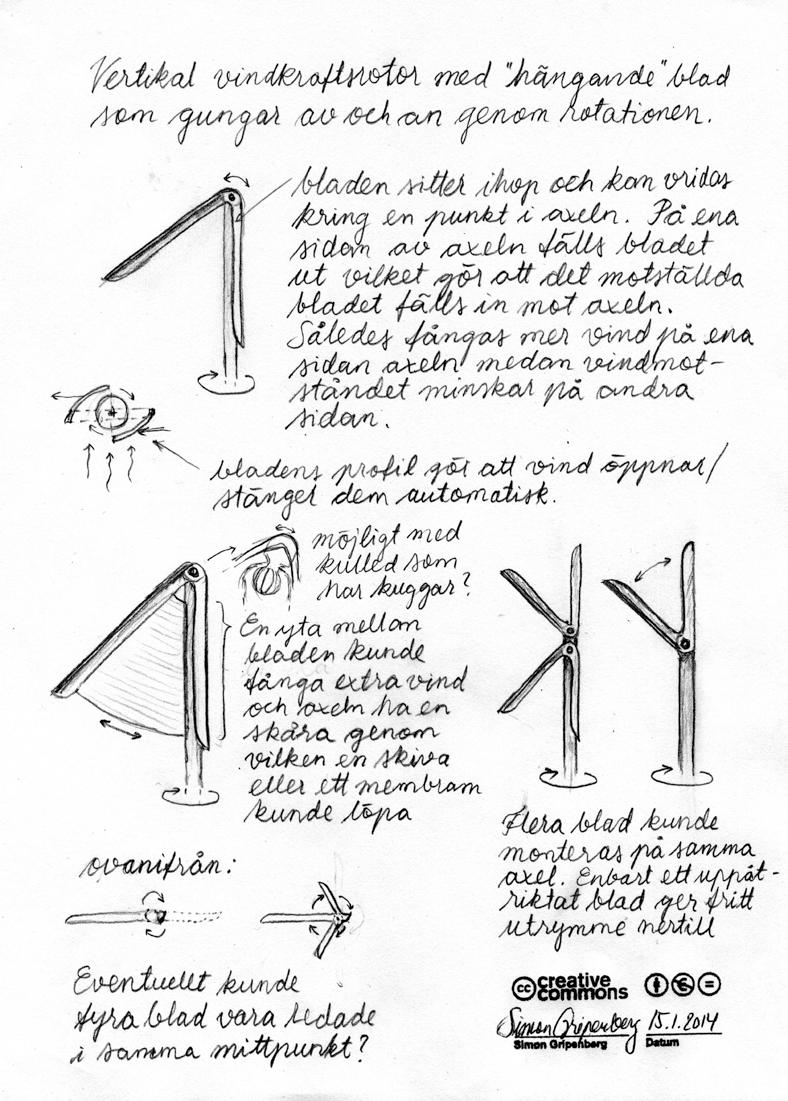 Vertikal vindkraftsrotor med "hängande" blad
som gungar av och an genom rotationen.
bladen sitter ihop och kan vridas
kring en punkt i axeln. På ena
sidan av axeln fälls bladet
ut vilket gör att det motställda
bladet fälls in mot axeln.
Således fångas mer vind på ena
sidan axeln medan vindmot-
ståndet minskar på andra
sidan.
bladens profil gör att vind öppnar/
stänger dem automatisk.
möjligt med
kulled som
har kuggar?
En yta mellan
bladen kunde
fånga extra vind
och axeln ha en
skåra genom
vilken en skiva
eller ett membram
kunde löpa
Flera blad kunde
monteras på samma
axel. Enbart ett uppåt-
riktat blad ger fritt
utrymme nertill
ovanifrån:
Eventuellt kunde
fyra blad vara ledade
i samma mittpunkt?
cc creative
commons
Simon Gripenberg 15.1.2014
Simon Gripenberg Datum